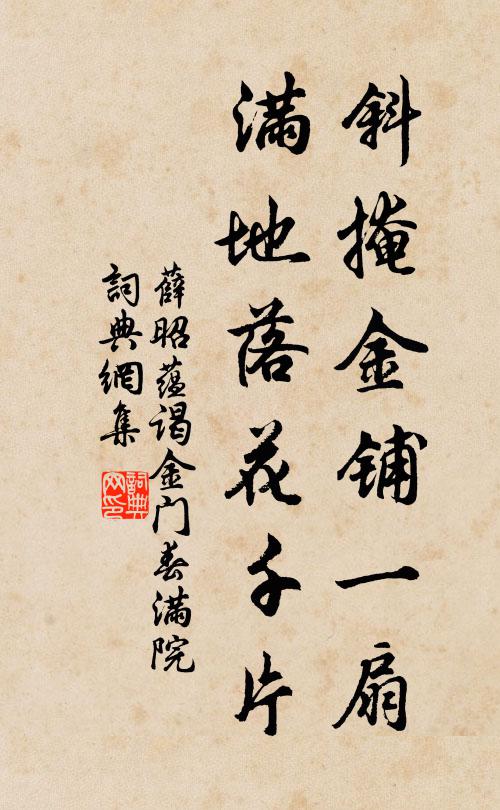 斜掩金铺一扇
满地落花千片
薛昭蕴谒金门春满院
詞典網集
詞典网印